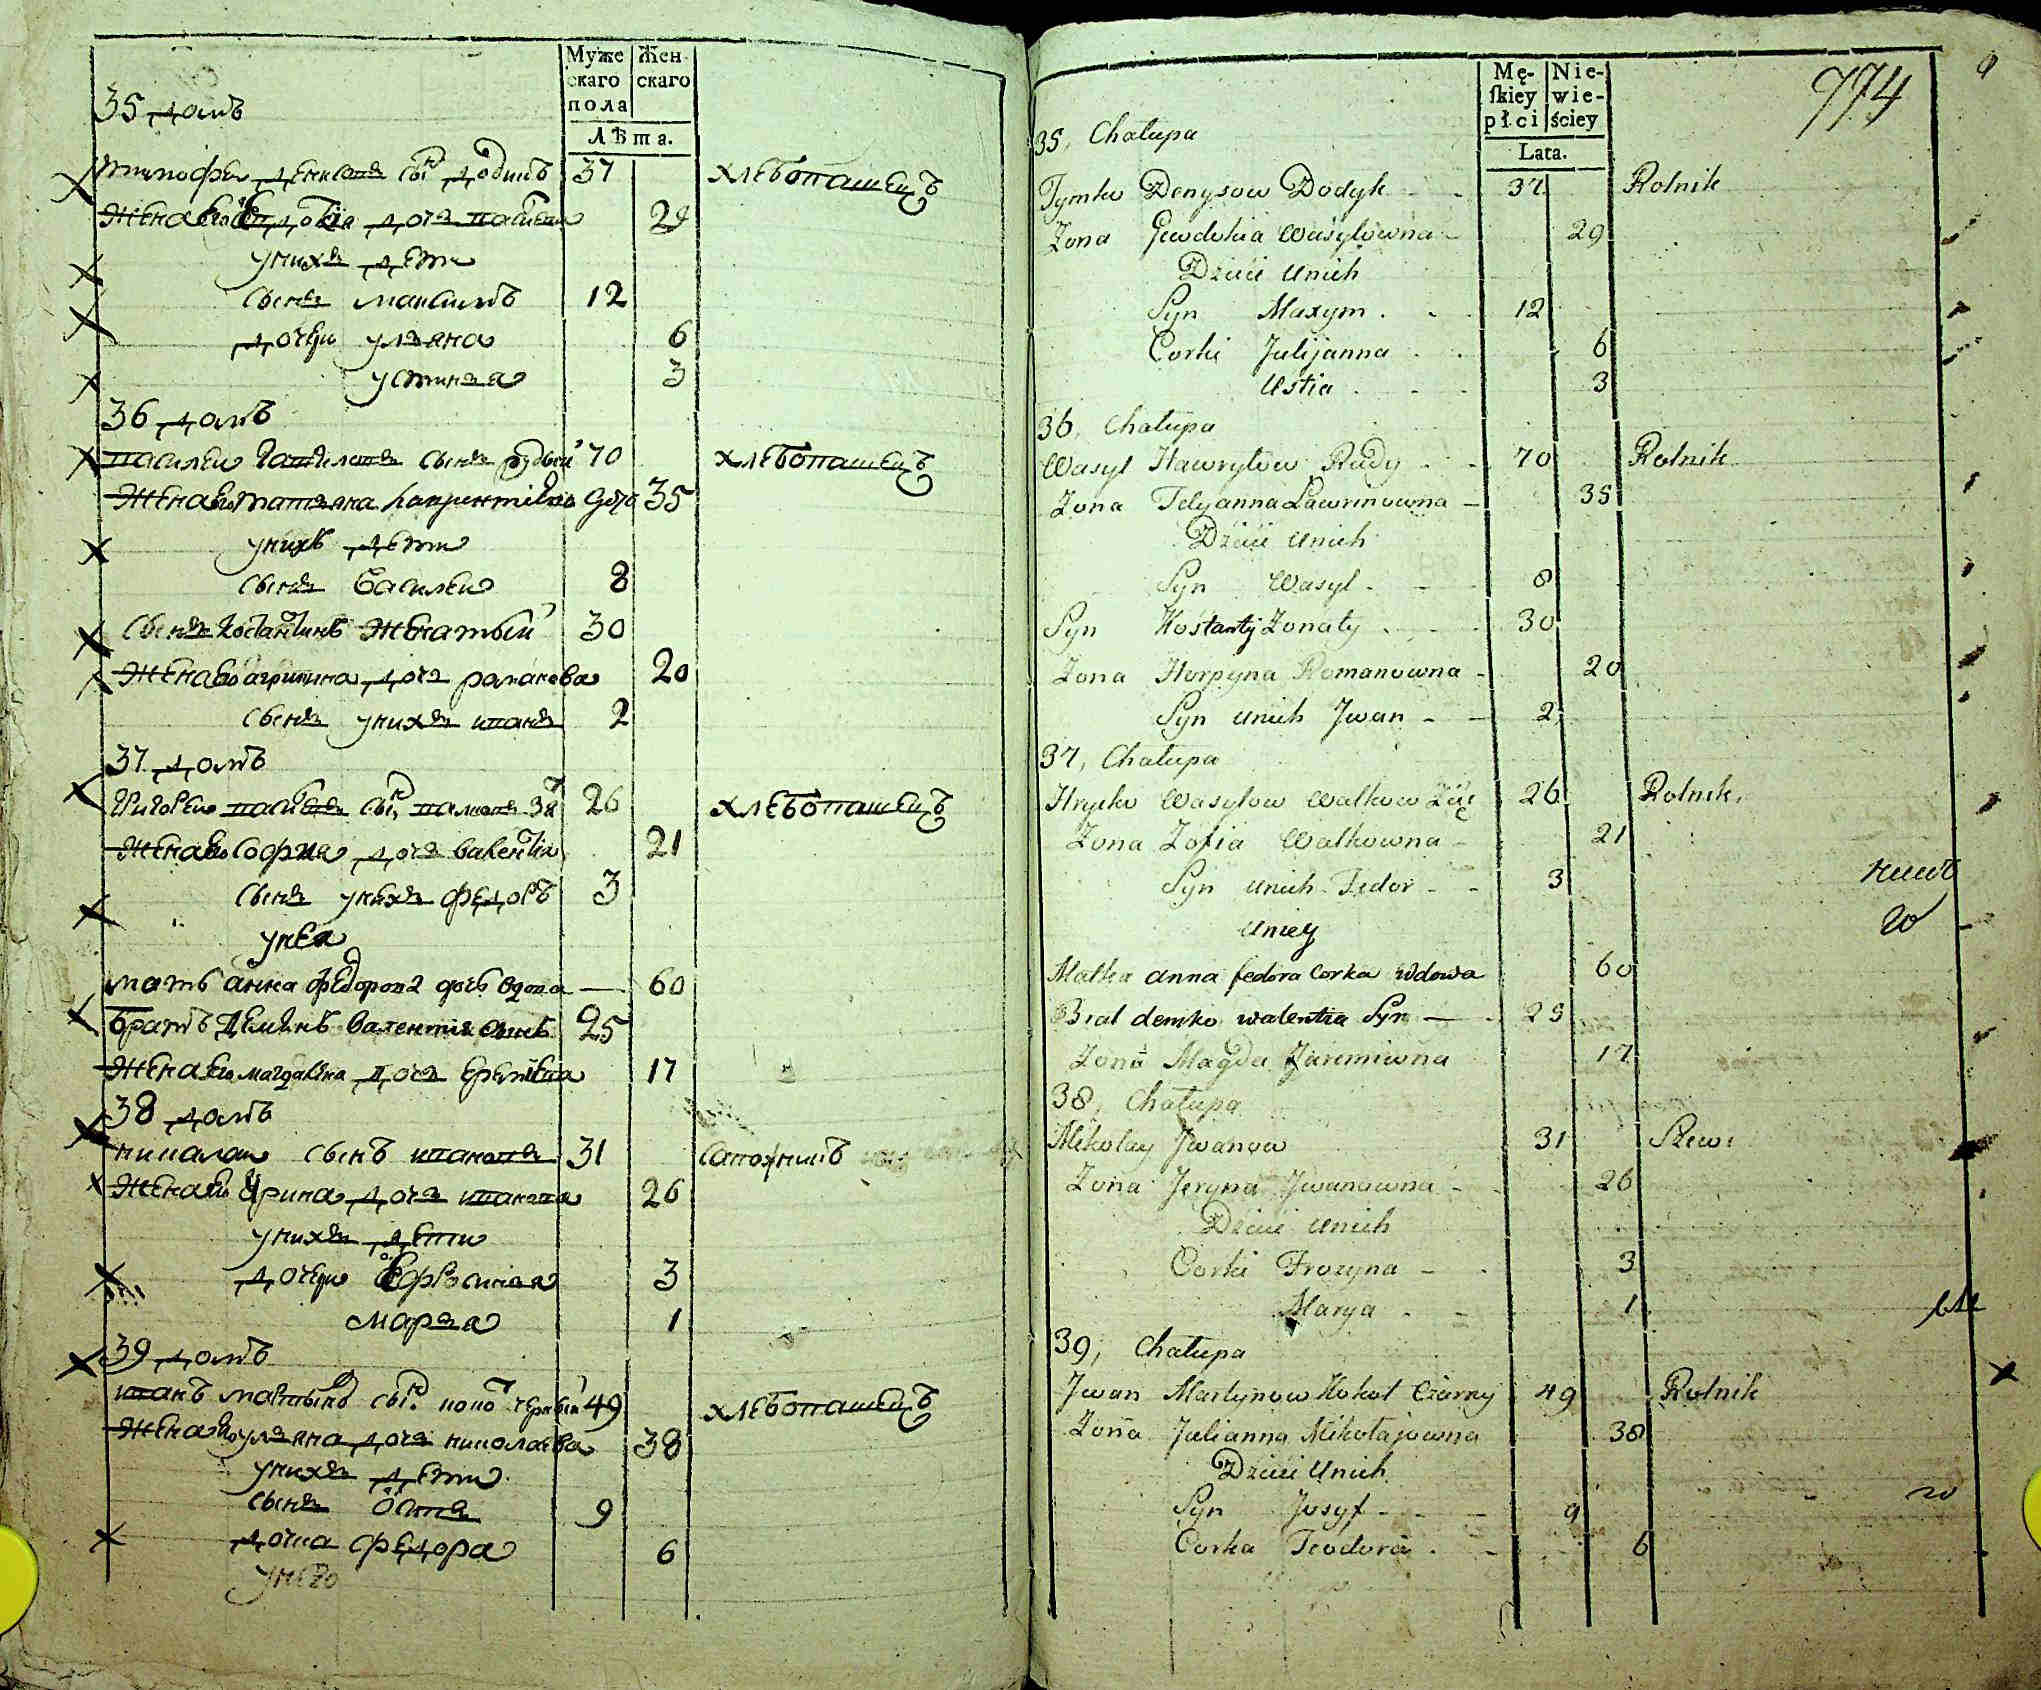 Муже скаго пола
Жен скаго
Лѣта.
35 домъ
Тимофеи Денисовъ сынъ Додикъ 37 хлебопашецъ
Жена его Евдокиа дочь васильева 29
у нихъ дети
сынъ максимъ 12
дочери ульяна 6
устинья 3
36 домъ
василеи Гаврилов сынъ рудый 70 хлебопашецъ
Жена его татьяна 35
у нихъ дети
сынъ Василеи 8
сынъ Костантинъ Женатый 30
Жена его агрипина дочь романова 20
сынъ у нихъ иванъ 2
37 домъ
Григореи васильевъ сынъ 26 хлебопашецъ
Жена его Софиа дочь валентиа 21
сынъ у нихъ федоръ 3
у нея
мать анна федорова дочь вдова — 60
братъ Демянъ валентиа сынъ 25
Жена его магдалена дочь еремиева 17
38 домъ
николаи сынъ ивановъ 31 сапожникъ
Жена его Ирина дочь иванова 26
у нихъ дети
дочери Ефросинья 3
марья 1
39 домъ
иванъ мартынов сынъ 49 хлебопашецъ
Жена его ульяна дочь николаева 38
у нихъ дети
сынъ 9
дочка федора 6
у него
Mę- ſkiey płci
Nie- wie- ściey
Lata.
774
9
35, Chałupa
Tymko Denysow Dodyk 37 Rolnik
Zona Jewdokia Wasylowna 29
Dzieci unich
Syn Maxym 12
Corki Julijanna 6
Ustia 3
36, Chałupa
Wasyl Hawryłow Rudy 70 Rolnik
Zona Tetyanna Lawrinowna 35
Dzieci unich
Syn Wasyl 8
Syn Kostanty Zonaty 30
Zona Horpyna Romanowna 20
Syn unich Jwan 2
37, Chałupa
Hrycko Wasylow Walkow Zięć 26 Rolnik
Zona Zofia Walkowna 21
Syn unich Fedor 3
uniey
Matka anna fedora corka wdowa 60
Brat demko walentia Syn — 25
Zona Magda Jaremiwna 17
38, Chałupa
Mikołay Jwanow 31 Szewc
Zona Jeryna Jwanowna 26
Dzieci unich
Corki Frozyna 3
Marya 1
39, Chałupa
Jwan Martynow Kokot Czarny 49 Rolnik
Zona Julianna Mikołajowna 38
Dzieci unich
Syn Josyf 9
Corka Teodora 6